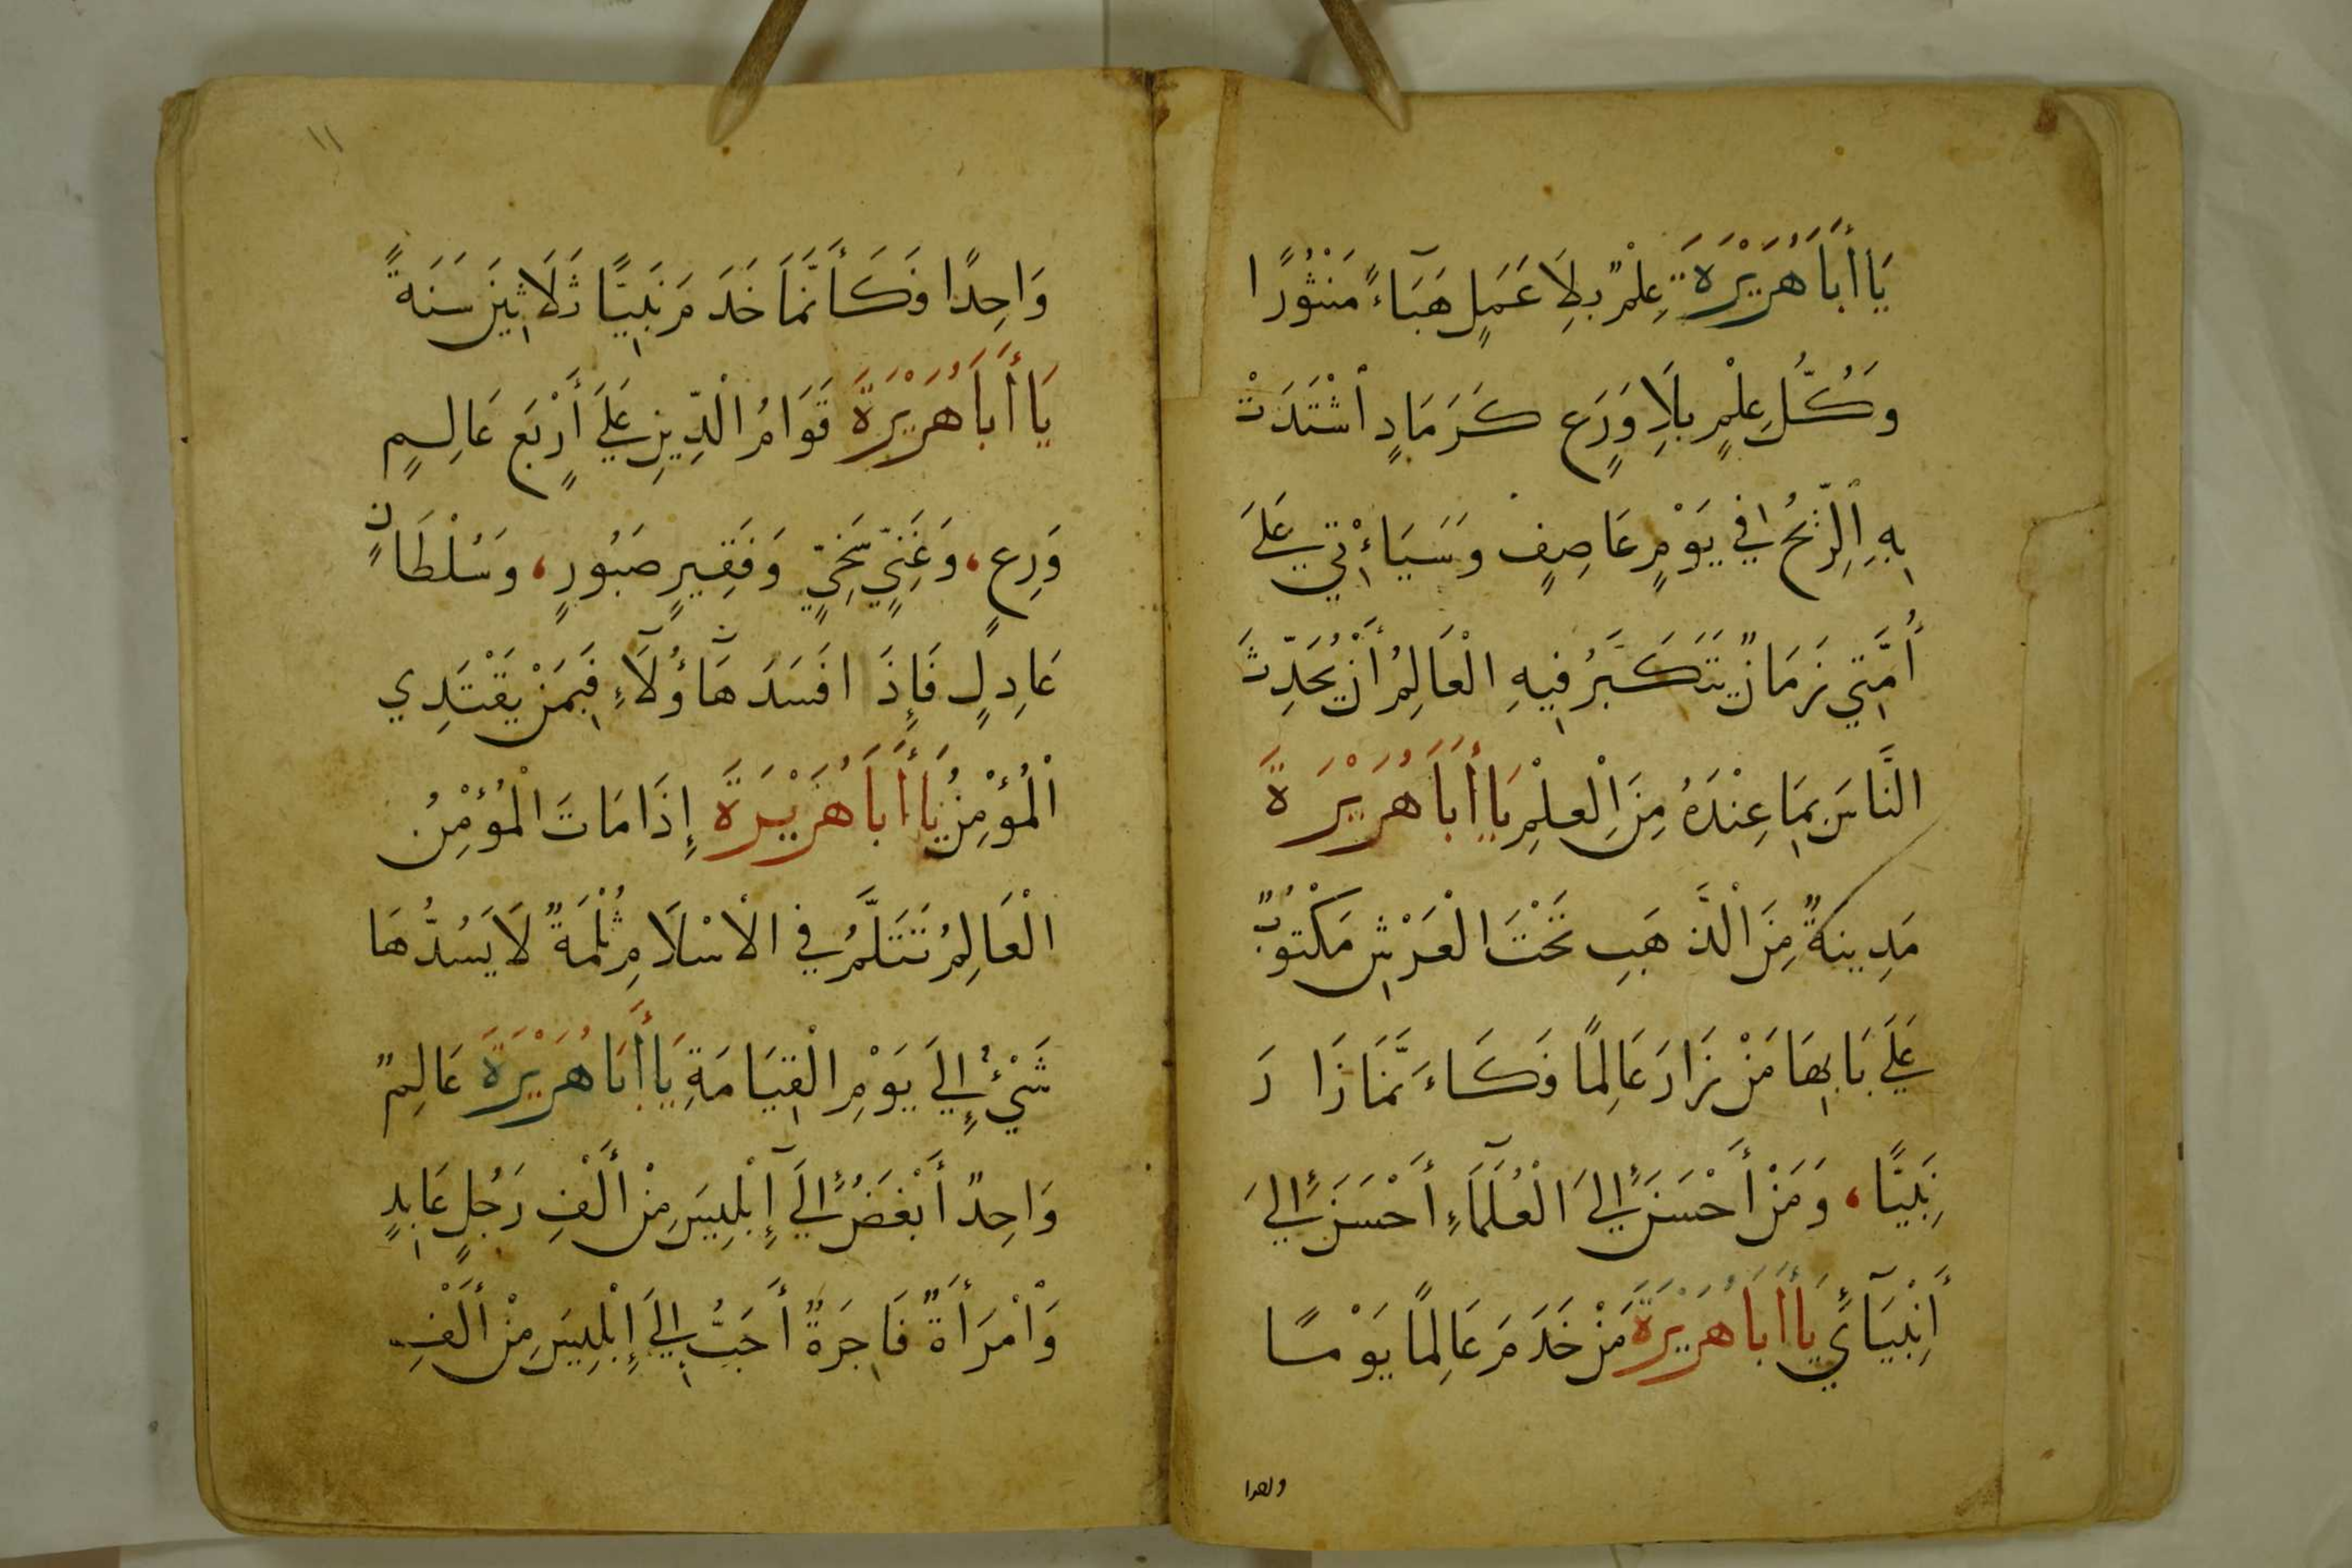 يَا أَبَا هُرَيْرَةَ عِلْمٌ بِلَا عَمَلٍ هَبَآءً مَنْثُورًا
وَكُلُّ عِلْمٍ بِلَا وَرَعٍ كَرَمَادٍ اشْتَدَتْ
بِهِ الرِّيحُ فِي يَوْمٍ عَاصِفٍ وَسَيَاءْتِي عَلَى
أُمَّتِي زَمَانٌ يَتَكَبَّرُ فِيهِ الْعَالِمُ أَنْ يُحَدِّثَ
النَّاسَ بِمَا عِنْدَهُ مِنَ الْعِلْمِ يَا أَبَا هُرَيْرَةَ
مَدِينَةٌ مِنَ الْذَّهَبِ تَحْتَ الْعَرْشِ مَكْتُوبٌ
عَلَى بَابِهَا مَنْ زَارَ عَالِمًا فَكَاءَنَّمَا زَا رَ
نَبِيًّا، وَمَنْ أَحْسَنَ إِلَى الْعُلَمَآءِ أَحْسَنَ إِلَى
أَنْبِيَآئِي يَا أَبَا هُرَيْرَةَ مَنْ خَدَمَ عَالِمًا يَوْمًا
واحدا
١١
وَاحِدًا فَكَأَنَّمَا خَدَمَ نَبِيًّا ثَلَاثِينَ سَنَةً
يَا أَبَا هُرَيْرَةَ قَوَامُ الْدِّينِ عَلَى أَرْبَعٍ عَالِمٍ
وَرِعٍ، وَغَنِيٍّ سَخِيٍّ وَفَقِيرٍ صَبُورٍ، وَسُلْطَانٍ
عَادِلٍ فَإِذَ افَسَدَ هَآؤُلَآءِ فَبِمَنْ يَقْتَدِي
الْمُؤْمِنُ يَا أَبَا هُرَيْرَةَ إِذَا مَاتَ الْمُؤْمِنُ
الْعَالِمُ تَتَثَلَّمُ فِي الْاسْلَامِ ثُلْمَةٌ لَا يَسُدُّهَا
شَيْءٌ إِلَى يَوْمِ الْقِيَامَةِ يَا أَبَا هُرَيْرَةَ عَالِمٌ
وَاحِدٌ أَبْغَضُ إِلَى إِبْلِيسَ مِنْ أَلْفِ رَجُلٍ عَابِدٍ
وَامْرَأَةٌ فَاجِرَةٌ أَحَبُّ إِلَى إِبْلِيسَ مِنْ أَلْفِ